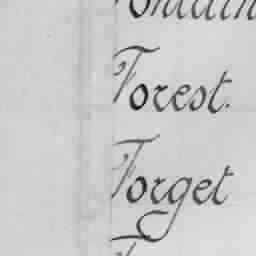 Forest.
Forget